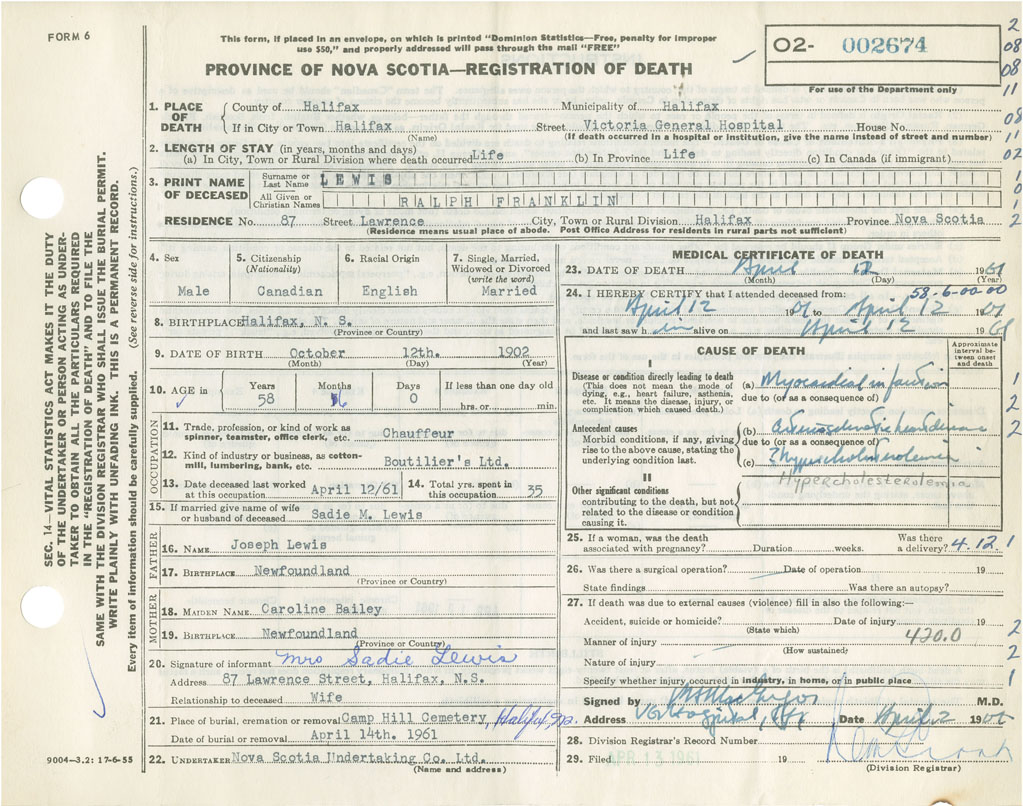 FORM 6
This form, if placed in an envelope, on which is printed "Dominion Statistics—Free, penalty for improper
use $50," and properly addressed will pass through the mail "FREE"
PROVINCE OF NOVA SCOTIA—REGISTRATION OF DEATH
02- 002674
For use of the Department only
2
08
08
11
08
11
02
1. PLACE OF DEATH
County of Halifax Municipality of Halifax
If in City or Town Halifax Street Victoria General Hospital House No.
(Name) (If death occurred in a hospital or institution, give the name instead of street and number)
2. LENGTH OF STAY (in years, months and days)
(a) In City, Town or Rural Division where death occurred Life (b) In Province Life (c) In Canada (if immigrant)
3. PRINT NAME OF DECEASED
Surname or Last Name LEWIS
All Given or Christian Names RALPH FRANKLIN
RESIDENCE No. 87 Street Lawrence City, Town or Rural Division Halifax Province Nova Scotia
(Residence means usual place of abode. Post Office Address for residents in rural parts not sufficient)
4. Sex
Male
5. Citizenship
(Nationality)
Canadian
6. Racial Origin
English
7. Single, Married,
Widowed or Divorced
(write the word)
Married
8. BIRTHPLACE Halifax, N. S.
(Province or Country)
9. DATE OF BIRTH October 12th. 1902
(Month) (Day) (Year)
10. AGE in
Years
58
Months
6
Days
0
If less than one day old
hrs. or min.
OCCUPATION
11. Trade, profession, or kind of work as
spinner, teamster, office clerk, etc. Chauffeur
12. Kind of industry or business, as cotton-
mill, lumbering, bank, etc. Boutilier's Ltd.
13. Date deceased last worked
at this occupation April 12/61
14. Total yrs. spent in
this occupation 35
15. If married give name of wife
or husband of deceased Sadie M. Lewis
FATHER
16. NAME Joseph Lewis
17. BIRTHPLACE Newfoundland
(Province or Country)
MOTHER
18. MAIDEN NAME Caroline Bailey
19. BIRTHPLACE Newfoundland
(Province or Country)
20. Signature of informant Mrs Sadie Lewis
Address 87 Lawrence Street, Halifax, N.S.
Relationship to deceased Wife
21. Place of burial, cremation or removal Camp Hill Cemetery, Halifax, N.S.
Date of burial or removal April 14th. 1961
22. UNDERTAKER Nova Scotia Undertaking Co. Ltd.
(Name and address)
MEDICAL CERTIFICATE OF DEATH
23. DATE OF DEATH April 12 1961
(Month) (Day) (Year)
58-6-00-00
24. I HEREBY CERTIFY that I attended deceased from:
April 12 1961 to April 12 1961
and last saw him alive on April 12 1961
CAUSE OF DEATH
Approximate
interval be-
tween onset
and death
I
Disease or condition directly leading to death
(This does not mean the mode of
dying, e.g., heart failure, asthenia,
etc. It means the disease, injury, or
complication which caused death.)
(a) Myocardial infarction
due to (or as a consequence of)
Antecedent causes
Morbid conditions, if any, giving
rise to the above cause, stating the
underlying condition last.
(b) Arteriosclerotic heart disease
due to (or as a consequence of)
(c) ? hypercholesterolemia
Hypercholesterolemia
II
Other significant conditions
contributing to the death, but not
related to the disease or condition
causing it.
25. If a woman, was the death
associated with pregnancy? Duration weeks. Was there
a delivery? 4.12 1
26. Was there a surgical operation? Date of operation 19
State findings Was there an autopsy?
27. If death was due to external causes (violence) fill in also the following:—
Accident, suicide or homicide? Date of injury 19
(State which)
Manner of injury 420.0
(How sustained)
Nature of injury
Specify whether injury occurred in industry, in home, or in public place
Signed by M.D.
Address V G Hospital, Hfx Date April 2 19
28. Division Registrar's Record Number
29. Filed APR 13 1961 19
(Division Registrar)
SEC. 14—VITAL STATISTICS ACT MAKES IT THE DUTY
OF THE UNDERTAKER OR PERSON ACTING AS UNDER-
TAKER TO OBTAIN ALL THE PARTICULARS REQUIRED
IN THE "REGISTRATION OF DEATH" AND TO FILE THE
SAME WITH THE DIVISION REGISTRAR WHO SHALL ISSUE THE BURIAL PERMIT.
WRITE PLAINLY WITH UNFADING INK. THIS IS A PERMANENT RECORD.
Every item of information should be carefully supplied. (See reverse side for instructions.)
9004—3.2: 17-6-55